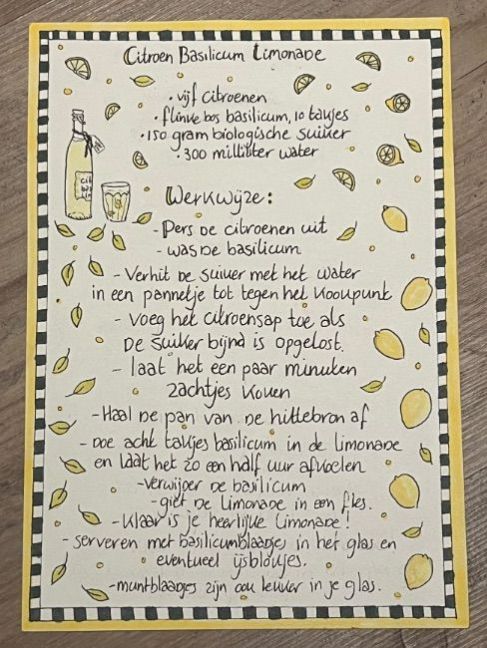 Citroen Basilicum Limonade
• vijf citroenen
• flinke bos basilicum, 10 takjes
• 150 gram biologische suiker
• 300 milliliter water
Werkwijze:
- Pers de citroenen uit
- was de basilicum
- Verhit de suiker met het water
in een pannetje tot tegen het kookpunt
- voeg het citroensap toe als
de suiker bijna is opgelost.
- laat het een paar minuten
zachtjes koken
- Haal de pan van de hittebron af
- doe acht takjes basilicum in de limonade
en laat het zo een half uur afkoelen
- verwijder de basilicum
- giet de limonade in een fles.
- Klaar is je heerlijke limonade!
- serveren met basilicumblaadjes in het glas en
eventueel ijsblokjes.
- muntblaadjes zijn ook lekker in je glas.